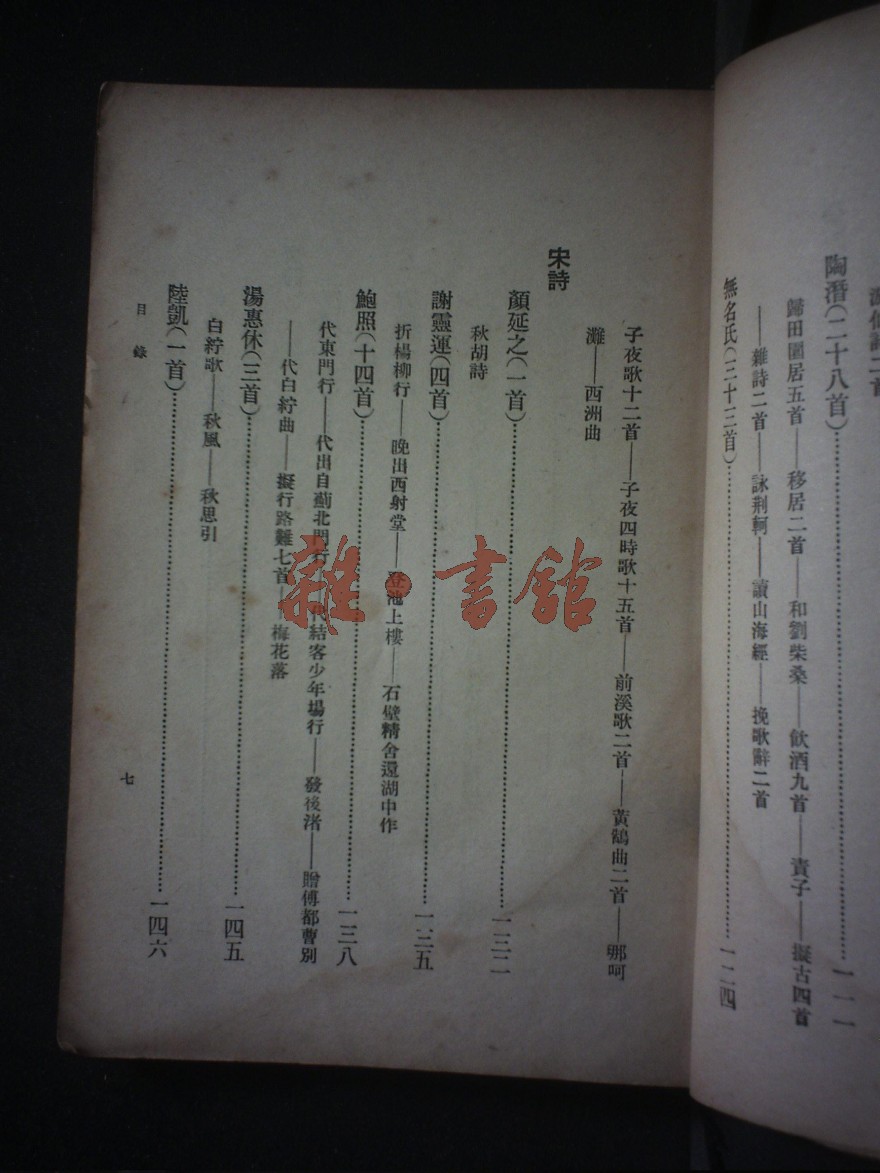 陶潛（二十八首）…………一一一
歸田園居五首——移居二首——和劉柴桑——飲酒九首——責子——擬古四首
——雜詩二首——詠荆軻——讀山海經——挽歌辭二首
無名氏（三十三首）…………一二四
子夜歌十二首——子夜四時歌十五首——前溪歌二首——黃鵠曲二首——那呵
灘——西洲曲
宋詩
顏延之（一首）…………一三二
秋胡詩
謝靈運（四首）…………一三五
折楊柳行——晚出西射堂——登池上樓——石壁精舍還湖中作
鮑照（十四首）…………一三八
代東門行——代出自薊北門行——代結客少年場行——發後渚——贈傅都曹別
——代白紵曲——擬行路難七首——梅花落
湯惠休（三首）…………一四五
白紵歌——秋風——秋思引
陸凱（一首）…………一四六
目錄
七
雜·書館